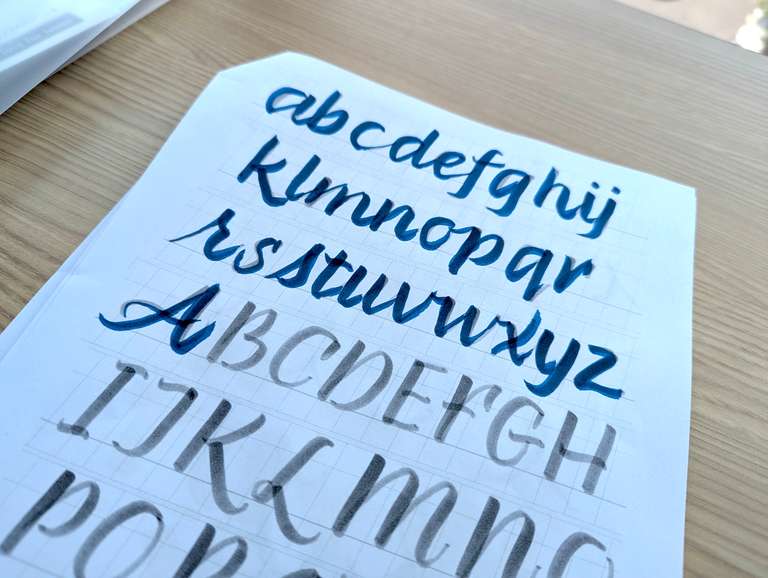 abcdefghij
klmnopqr
rsstuvwxyz
ABCDEFGH
IJKLMNO
P